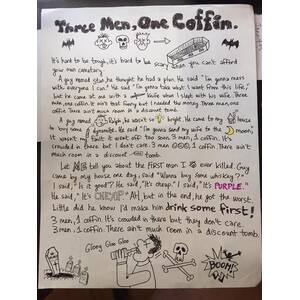 Three Men, One Coffin.
It's hard to be tough, it's hard to be scary when you can't afford
your own cemetery.
A guy named Stan, he thought he had a plan. He said "I'm gonna mess
with everyone I can." He said "I'm gonna take what I want from this life,"
but he came at me with a knife when I slept with his wife. Three
men, one coffin, it ain't that fancy but I needed the money. Three men, one coffin
There ain't much room in a discount tomb.
A guy named Ralph, he wasn't so bright. He came to my house
to buy some dynamite. He said "I'm gonna send my wife to the moon,
it wasn't his fault it went off too soon. 3 men, 1 coffin. It's
crowded in there but I don't care. 3 men, 1 coffin. There ain't
much room in a discount tomb.
Let ME tell you about the FIRST man I ever killed. Guy
came by my house one day, said "Wanna buy some whiskey?"
I said, "Is it good?" He said, "It's cheap." I said, "It's PURPLE."
He said, "It's CHEAP." Ah, but in the end, he got the worst.
Little did he know I'd make him drink some first!
3 men, 1 coffin. It's crowded in there but they don't care.
3 men, 1 coffin There ain't much room in a discount tomb.
Gloog Gloo Gloo
BOOM!